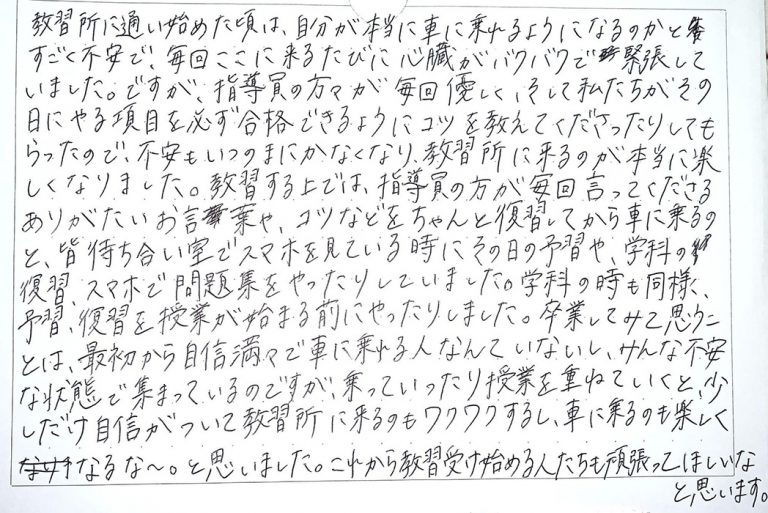 教習所に通い始めた頃は、自分が本当に車に乗れるようになるのかと
すごく不安で、毎回ここに来るたびに心臓がバクバクで緊張して
いました。ですが、指導員の方々が毎回優しく、そして私たちがその
日にやる項目を必ず合格できるようにコツを教えてくださったりしても
らったので、不安もいつのまにかなくなり、教習所に来るのが本当に楽
しくなりました。教習する上では、指導員の方が毎回言ってくださる
ありがたいお言葉や、コツなどをちゃんと復習してから車に乗るの
と、皆待ち合い室でスマホを見ている時にその日の予習や、学科の
復習、スマホで問題集をやったりしていました。学科の時も同様、
予習、復習を授業が始まる前にやったりしました。卒業してみて思うこ
とは、最初から自信満々で車に乗れる人なんていないし、みんな不安
な状態で集まっているのですが、乗っていったり授業を重ねていくと、少
しだけ自信がついて教習所に来るのもワクワクするし、車に乗るのも楽しく
なるな〜。と思いました。これから教習受け始める人たちも頑張ってほしいな
と思います。